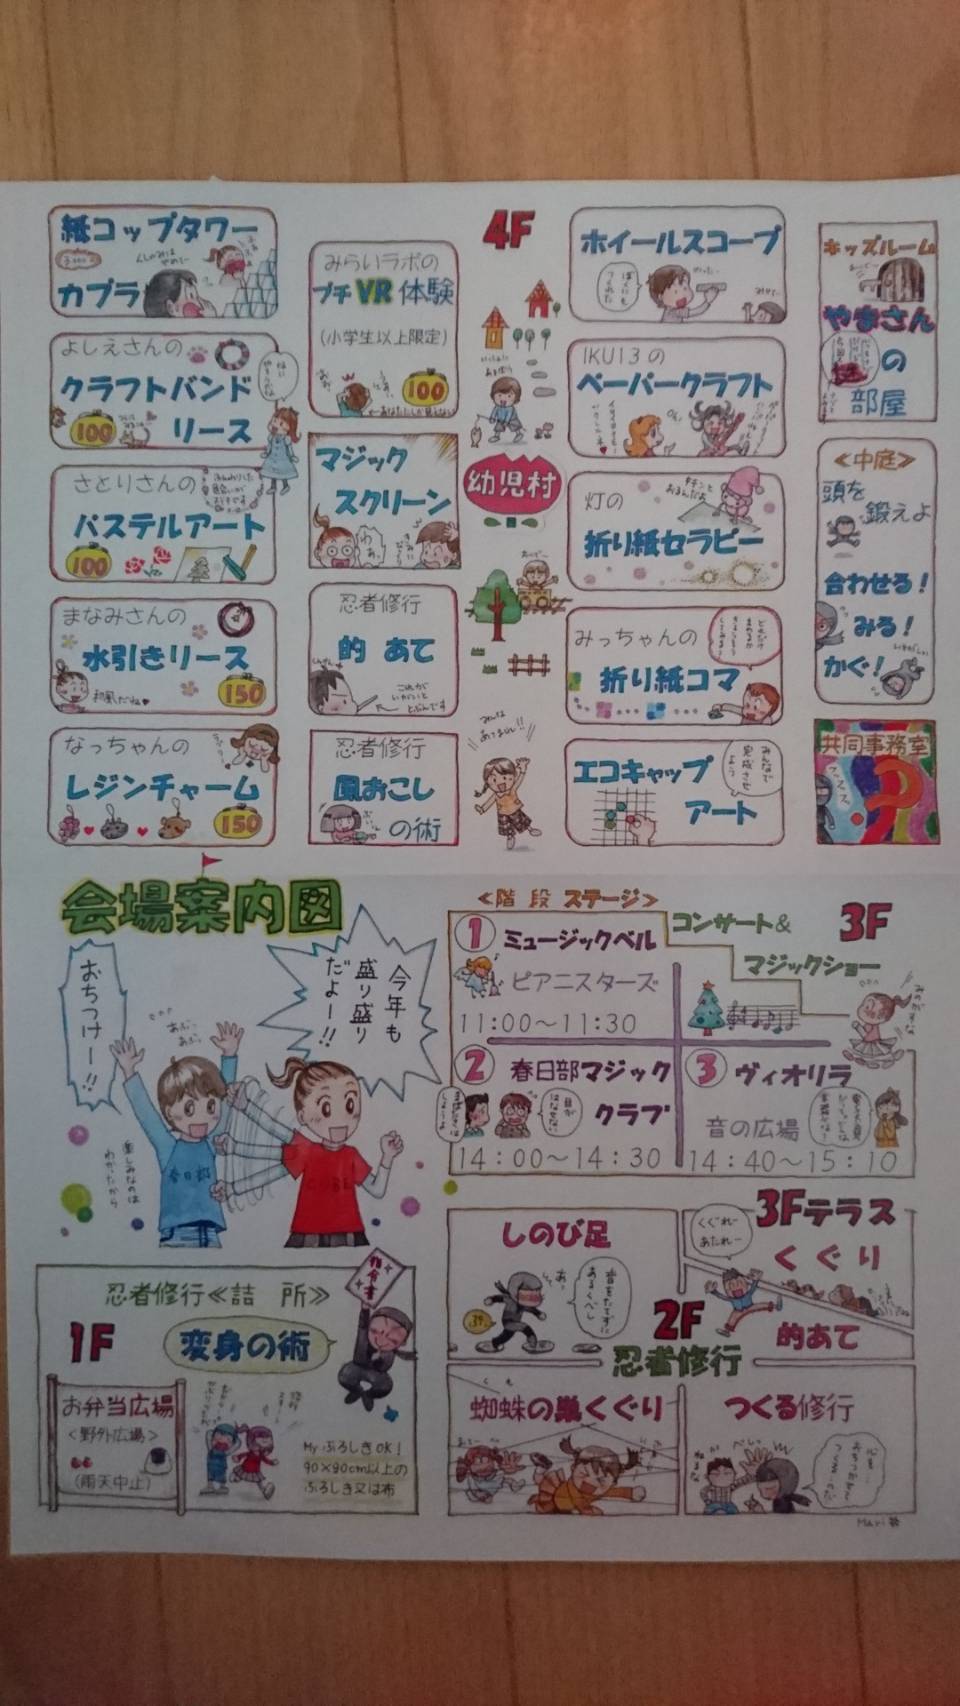 4F
紙コップタワー
カプラ
よしえさんの
クラフトバンド
100
リース
さとりさんの
パステルアート
100
まなみさんの
水引きリース
和風だね
150
なっちゃんの
レジンチャーム
150
みらいラボの
プチVR体験
(小学生以上限定)
100
マジック
スクリーン
忍者修行
的あて
忍者修行
風おこし
の術
幼児村
ホイールスコープ
IKU13の
ペーパークラフト
灯の
折り紙セラピー
みっちゃんの
折り紙コマ
エコキャップ
アート
みんなで
完成させ
よう
キッズルーム
やまさん
の
部屋
<中庭>
頭を
鍛えよ
合わせる!
みる!
かぐ!
共同事務室
?
会場案内図
おちつけー!!
今年も
盛り盛り
だよー!!
楽しみなのは
わかったから
春日部
<階段ステージ>
コンサート&
マジックショー
3F
1 ミュージックベル
ピアニスターズ
11:00〜11:30
2 春日部マジック
クラブ
14:00〜14:30
3 ヴィオリラ
音の広場
14:40〜15:10
忍者修行≪詰所≫
1F
変身の術
お弁当広場
<野外広場>
(雨天中止)
My ふろしきOK!
90×90cm以上の
ふろしき又は布
しのび足
音をたてずに
あるくべし
3Fテラス
くぐり
くぐれー
あたれー
的あて
2F
忍者修行
蜘蛛の巣くぐり
つくる修行